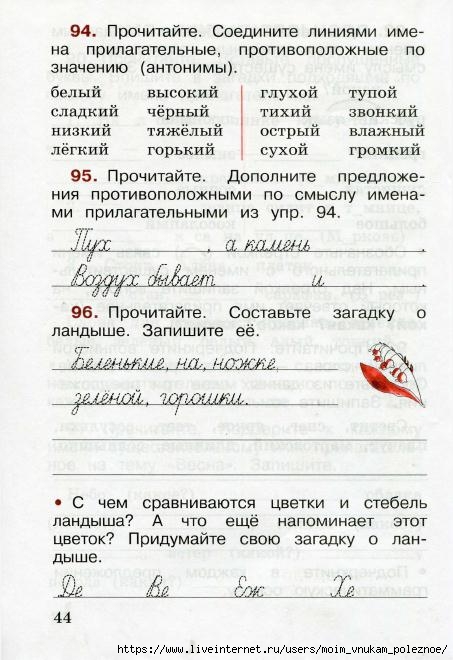 94. Прочитайте. Соедините линиями име-
на прилагательные, противоположные по
значению (антонимы).
белый высокий глухой тупой
сладкий чёрный тихий звонкий
низкий тяжёлый острый влажный
лёгкий горький сухой громкий
95. Прочитайте. Дополните предложе-
ния противоположными по смыслу имена-
ми прилагательными из упр. 94.
Пух , а камень .
Воздух бывает и .
96. Прочитайте. Составьте загадку о
ландыше. Запишите её.
Беленькие, на, ножке,
зелёной, горошки.
• С чем сравниваются цветки и стебель
ландыша? А что ещё напоминает этот
цветок? Придумайте свою загадку о лан-
дыше.
Де Ве Еж Хе
44
https://www.liveinternet.ru/users/moim_vnukam_poleznoe/